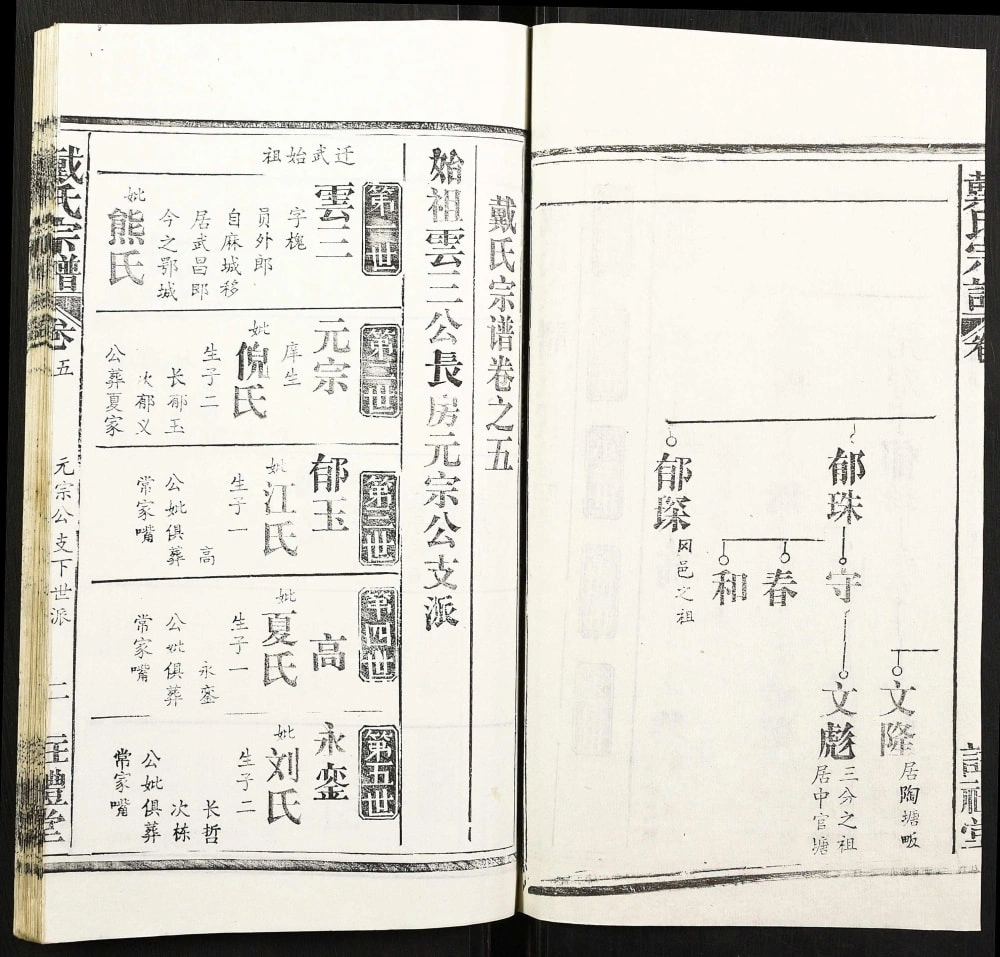 戴氏宗譜
卷
郁珠
守
春
和
郁琛
冈邑之祖
文隆
居陶塘畈
文彪
三分之祖
居中官塘
戴氏宗谱卷之五
始祖雲三公長房元宗公支派
迁武始祖
第一世
雲三
字槐
员外郎
自麻城移
居武昌即
今之鄂城
妣
熊氏
第二世
元宗
庠生
妣
倪氏
生子二
长郁玉
次郁义
公葬夏家
第三世
郁玉
妣
江氏
生子一
高
公妣俱葬
常家嘴
第四世
高
妣
夏氏
生子一
永銮
公妣俱葬
常家嘴
第五世
永銮
妣
刘氏
生子二
长哲
次栋
公妣俱葬
常家嘴
戴氏宗譜
卷五
元宗公支下世派
二
禮堂